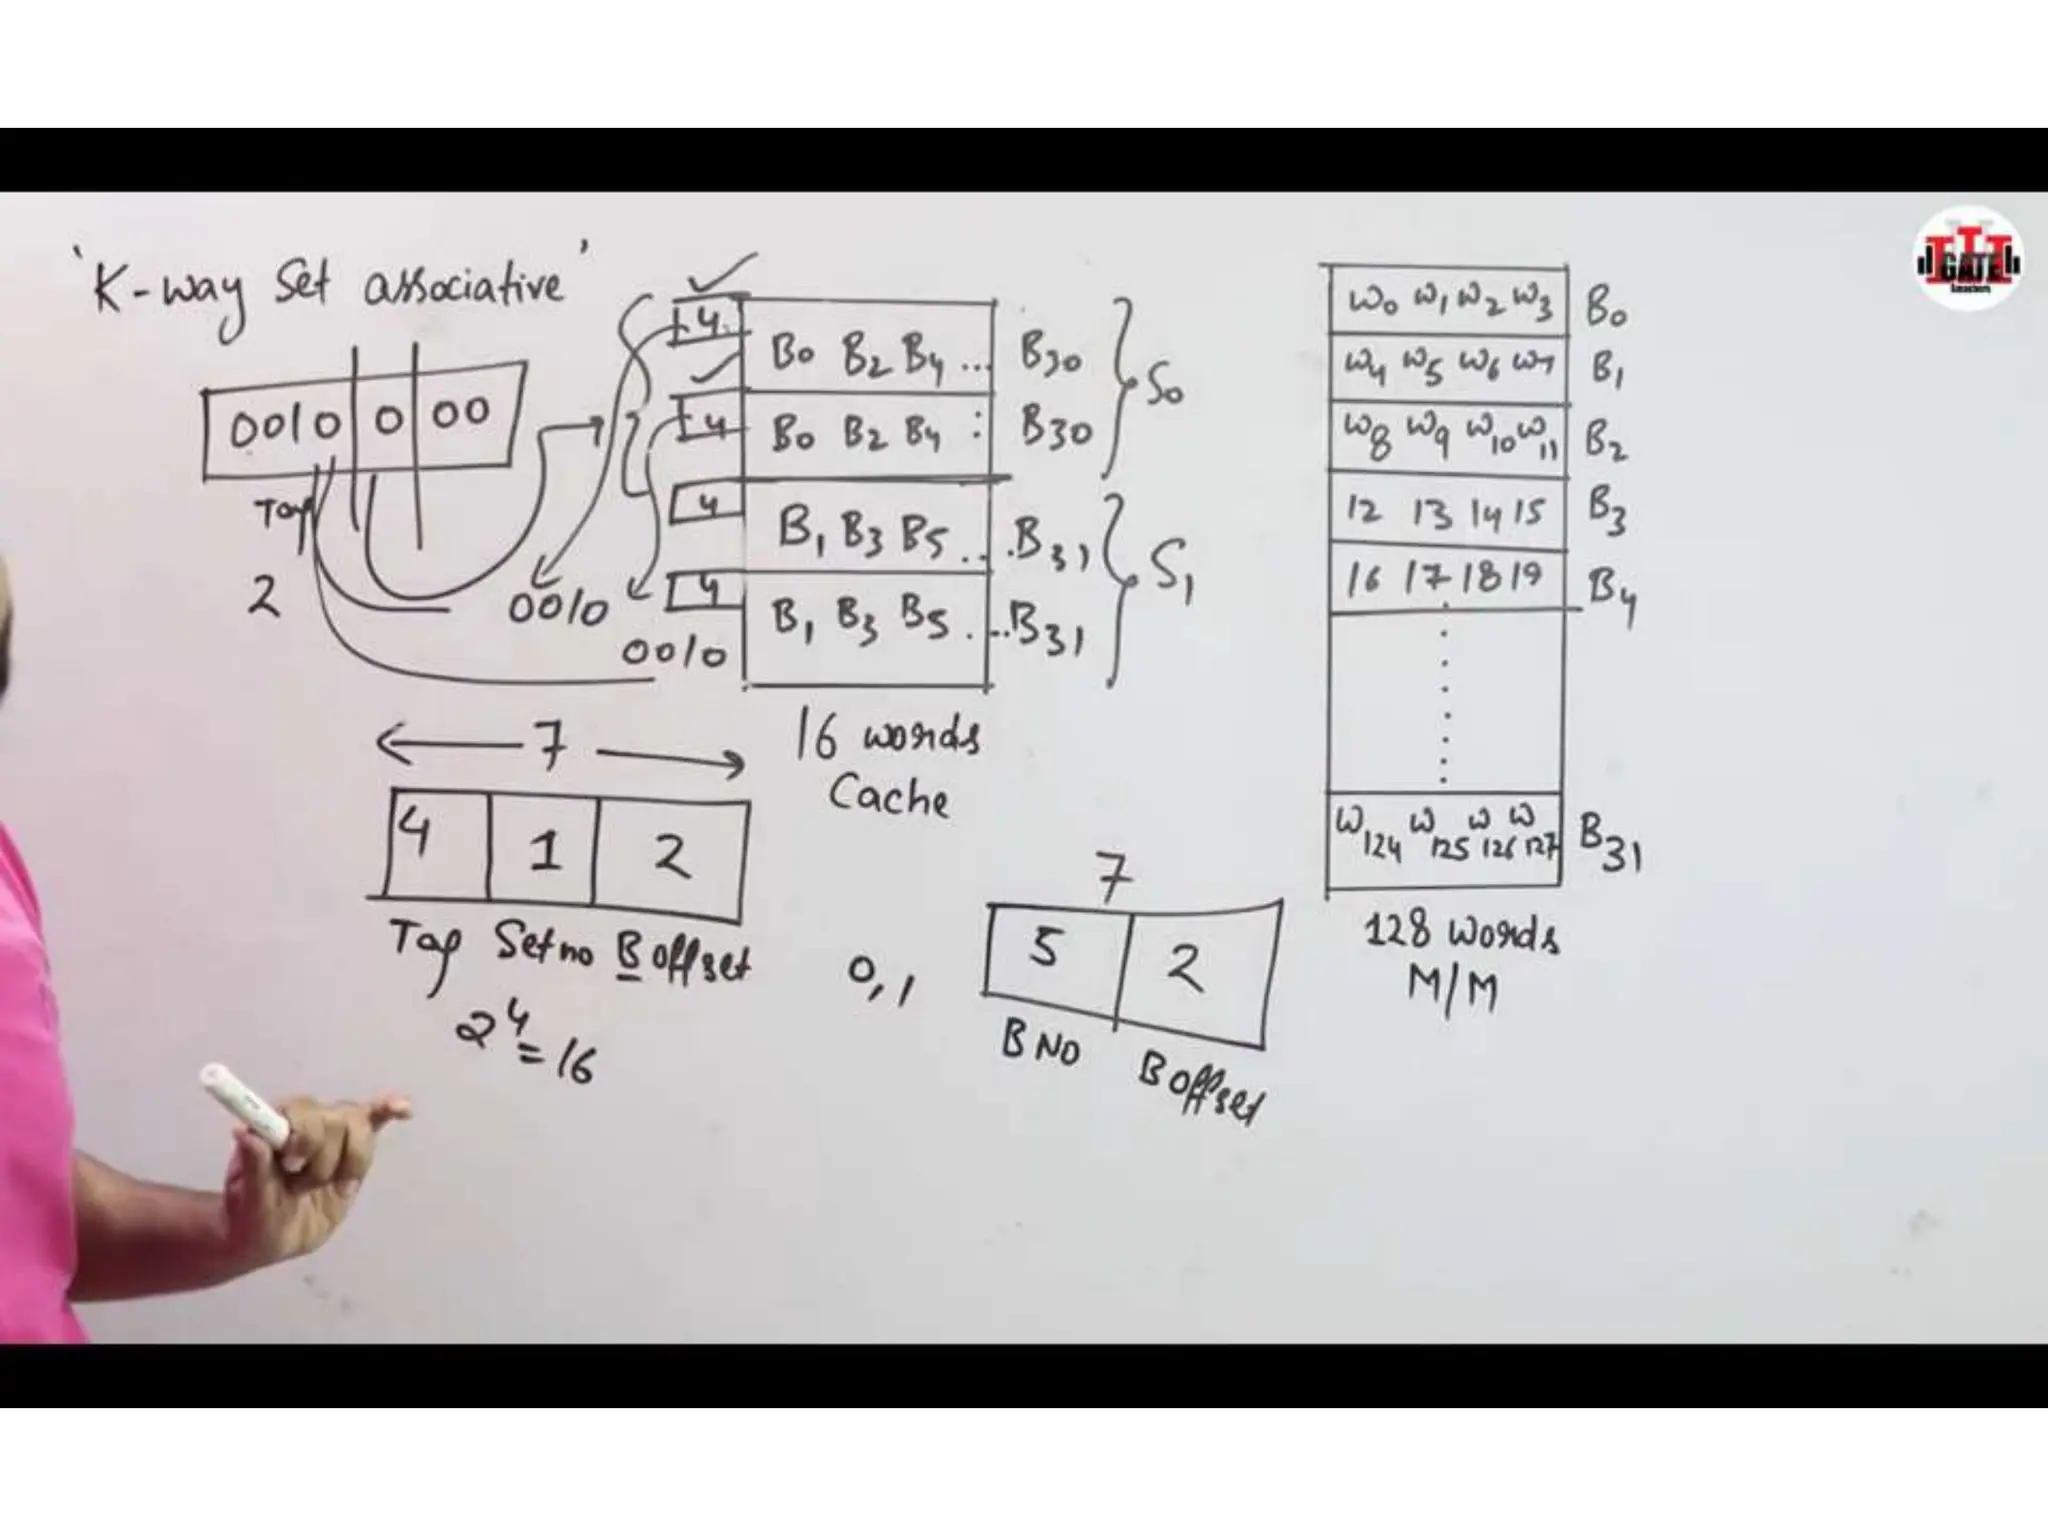 'K-way Set associative'
0010 0 00
Tag
2
4
B0 B2 B4 ... B30
4
B0 B2 B4 : B30
S0
4
B1 B3 B5 .. .B31
4
B1 B3 B5 . ...B31
S1
0010
0010
16 words
Cache
7
4 1 2
Tag Set no B offset
2^4 = 16
0,1
7
5 2
B NO B offset
W0 W1 W2 W3 B0
W4 W5 W6 W7 B1
W8 W9 W10 W11 B2
12 13 14 15 B3
16 17 18 19 B4
W124 W125 W126 W127 B31
128 words
M/M
GATE